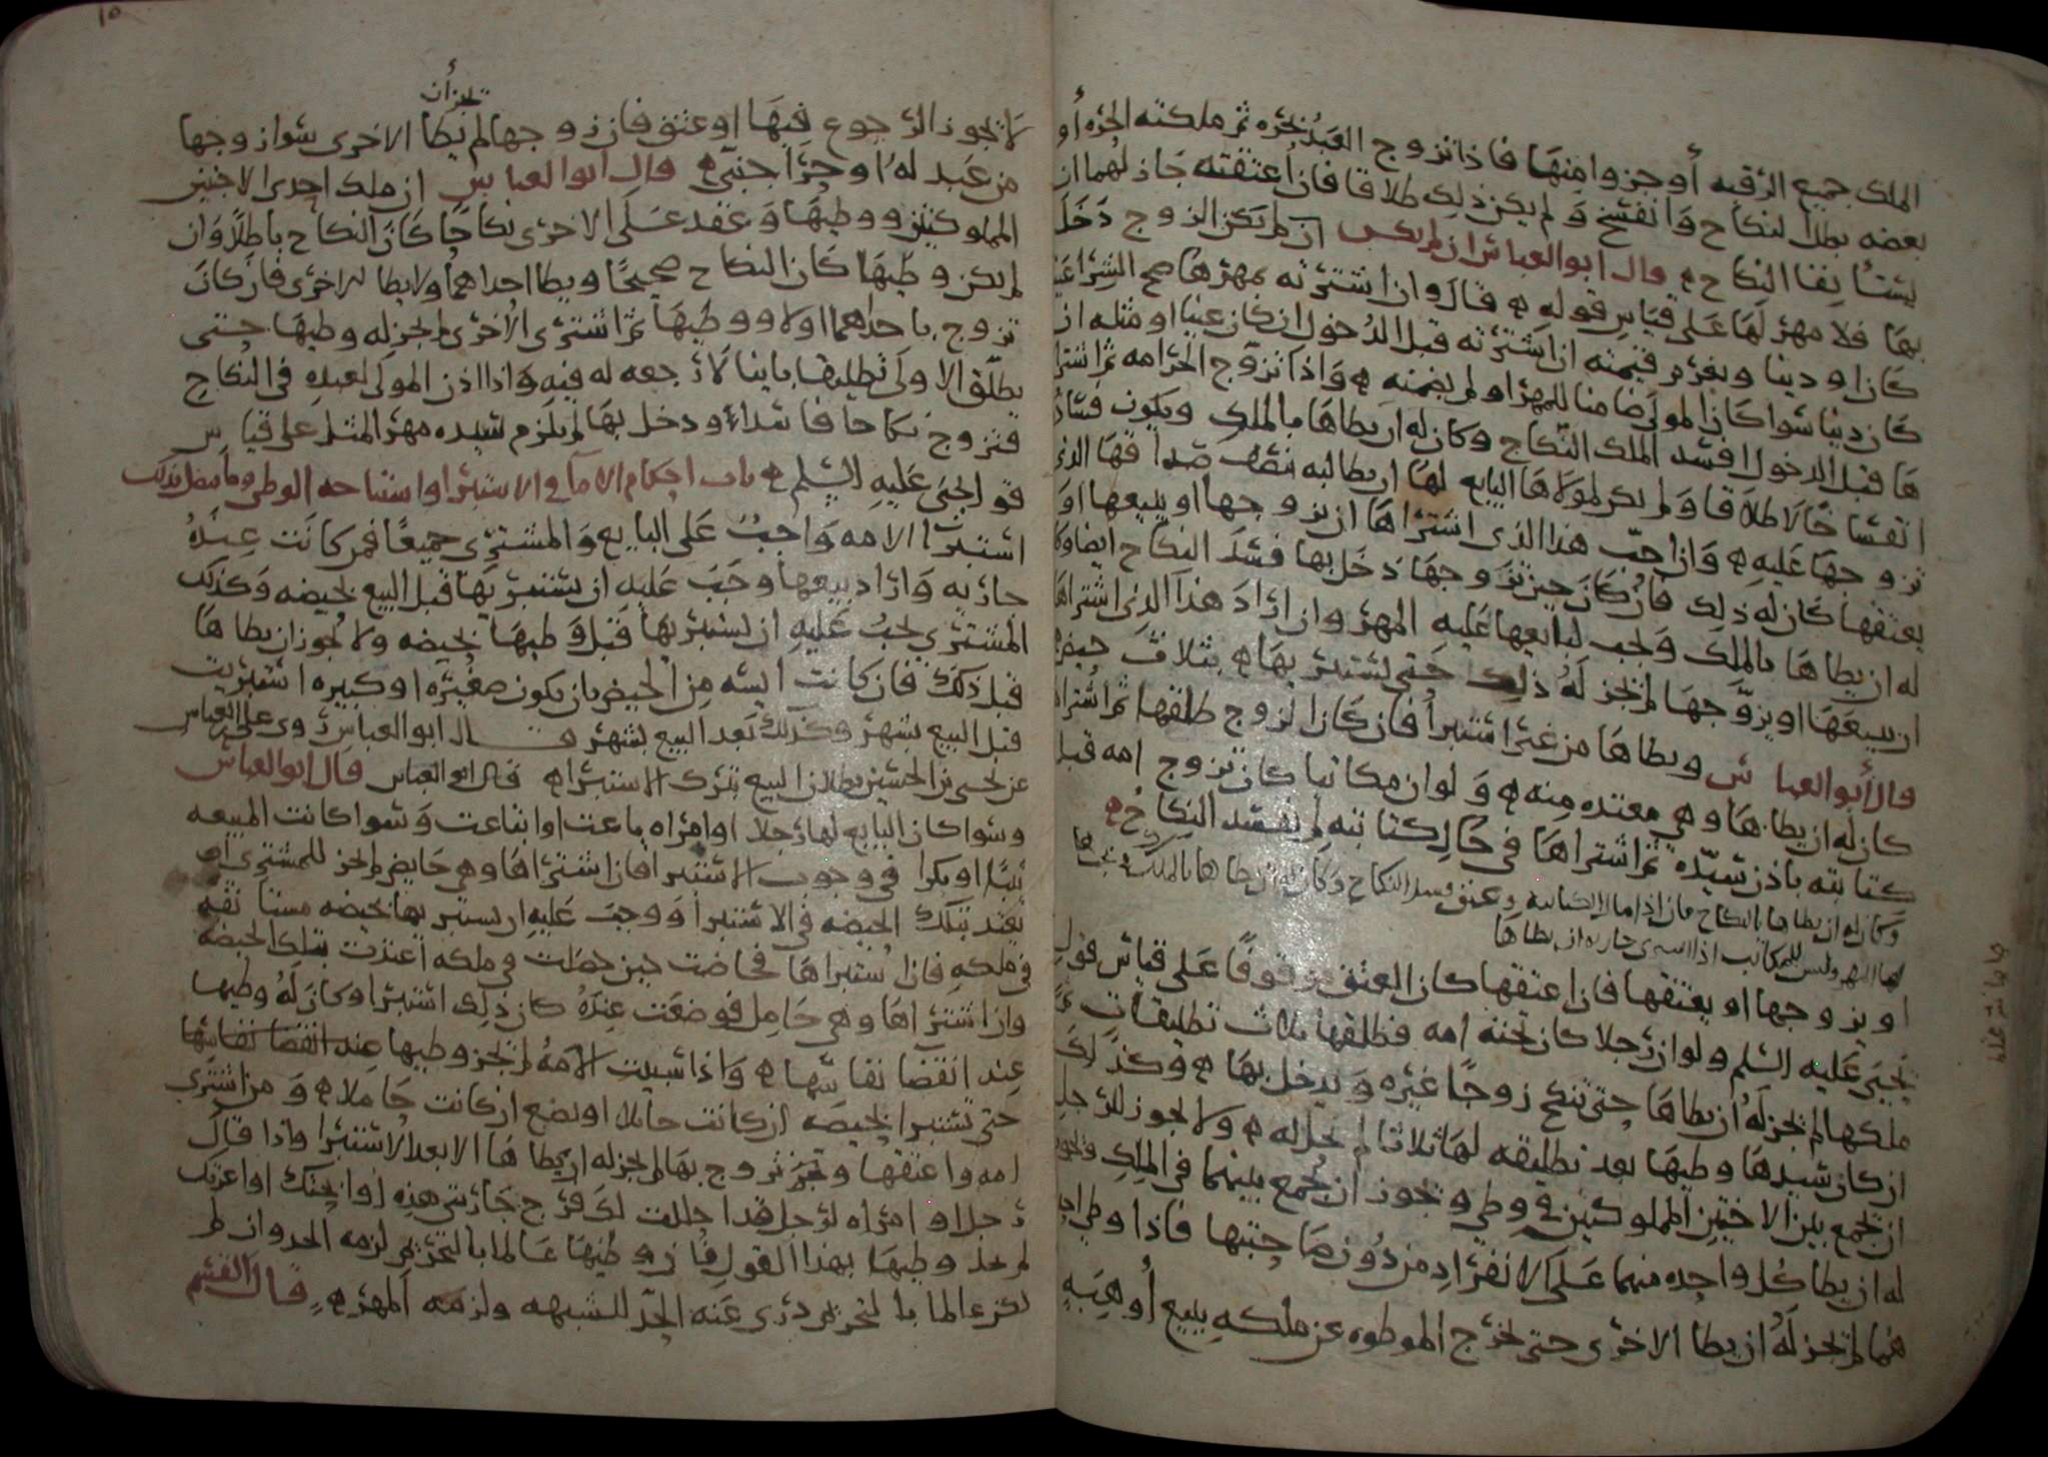 الملك جميع الرقبه أو جزوا منها فاذا تزوج العبد بحره ثم ملكته الحره أو
بعضه بطل النكاح وانفسخ ولم يكن ذلك طلاقا فان اعتقته جاز لهما ان
يستأنفا النكاح قال ابوالعباس ان لم يكن الزوج دخل
بها فلا مهر لها على قياس قوله قال وان اشترته بمهرها صح الشرا عينا
كان او دينا ويغرم قيمته ان اشترته قبل الدخول ان كان عينا او مثله ان
كان دينا سوا كان المولى ضامنا للمهر او لم يضمنه واذا تزوج الحر امه ثم اشترا
ها قبل الدخول افسد الملك النكاح وكان له ان يطاها بالملك ويكون فساد
انفساخا لا طلاقا ولم يكن لمولاها البايع لها ان يطالبه بنصف صداقها الذي
تزوجها عليه وان احب هذا الذي اشتراها ان يزوجها او يبيعها او
يعتقها كان له ذلك فان كان حين تزوجها دخل بها فسد النكاح ايضا وكان
له ان يطاها بالملك ويجب لبايعها عليه المهر وان اراد هذا الذي اشتراها
ان يبيعها او يزوجها لم يجز له ذلك حتى يستبرئ بها بثلاث حيض
قال أبوالعباس ويطاها من غير استبرأ فان كان الزوج طلقها ثم اشتراها
كان له ان يطاها وهي معتده منه ولو ان مكاتبا كان تزوج امه قبل
كتابته باذن سيده ثم اشتراها في حال كتابته لم يفسد النكاح
وكان له ان يطاها بالنكاح فان اذا مال الكتابه وعتق فسد النكاح وكان له ان يطاها بالملك
لها المهر وليس للمكاتب اذا اشترى جاريه ان يطاها
او يزوجها او يعتقها فان اعتقها كان العتق موقوفا على قياس قول
يحيى عليه السلم ولو ان رجلا كان تحته امه فطلقها ثلاث تطليقات ثم
ملكها لم يجز له أن يطاها حتى تنكح زوجا غيره ويدخل بها وكذلك
ان كان سيدها وطيها بعد تطليقه لها ثلاثا لم تحل له ولا يجوز للرجل
ان يجمع بين الاختين المملوكتين في وطي ويجوز ان يجمع بينهما في الملك
له ان يطا كل واحده منهما على الانفراد من دون صاحبتها فاذا وطي احد
هما لم يجز له ان يطا الاخرى حتى يخرج الموطوه عن ملكه ببيع أو هبه
لا يجوز الرجوع فيها او عتق فان زوجها لم يجز أن يطا الاخرى سوا زوجها
من عبد له او حر اجنبي قال ابوالعباس ان ملك احدى الاختين
المملوكتين ووطيها وعقد على الاخرى نكاحا كان النكاح باطلا وان
لم يكن وطيها كان النكاح صحيحا ويطا احداهما ولا يطا الاخرى فان كان
تزوج باحداهما اولا ووطيها ثم اشترى الاخرى لم يجز له وطيها حتى
يطلق الاولى تطليقا باينا لا رجعه له فيه واذا اذن المولى لعبده في النكاح
فتزوج نكاحا فاسدا ودخل بها لم يلزم سيده مهر المثل على قياس
قول يحيى عليه السلم باب احكام الاما في الاستبرا واستباحه الوطي وما يتصل بذلك
استبرا الامه واجب على البايع والمشتري جميعا فمن كانت عنده
جاريه واراد بيعها وجب عليه ان يستبرئها قبل البيع بحيضه وكذلك
المشتري يجب عليه ان يستبرئها قبل وطيها بحيضه ولا يجوز ان يطاها
قبل ذلك فان كانت ايسه من الحيض بان يكون صغيره او كبيره استبريت
قبل البيع بشهر وكذلك بعد البيع بشهر قال ابوالعباس روى على بن العباس
عن يحيى بن الحسين بطلان البيع بترك الاستبرا قال ابو العباس قال ابوالعباس
وسوا كان البايع لها رجلا او امراه باعت او ابتاعت وسوا كانت المبيعه
ثيبا او بكرا في وجوب الاستبرا فان اشتراها وهي حايض لم يجز للمشتري ان
يعتد بتلك الحيضه في الاستبرا ووجب عليه ان يستبريها بحيضه مستانفه
في ملكه فان استبراها فحاضت حين حصلت في ملكه اعتدت بتلك الحيضه
وان اشتراها وهي حامل فوضعت عنده كان ذلك استبرا وكان له وطيها
عند انقضا نفاسها واذا سبيت الامه لم يجز وطيها عند انقضا نفاسها
حتى تستبرا بحيضه ان كانت حايلا او تضع ان كانت حاملا ومن اشترى
امه واعتقها وتزوج بها لم يجز له ان يطاها الا بعد الاستبرا واذا قال
رجل او امراه لرجل قد احللت لك فرج جاريتي هذه او ابحتك او اعرتك
لم يحل وطيها بهذا القول فان وطيها عالما بالتحريم لزمه الحد وان لم
يكن عالما بالتحريم درى عنه الحد للشبهه ولزمه المهر قال القسم